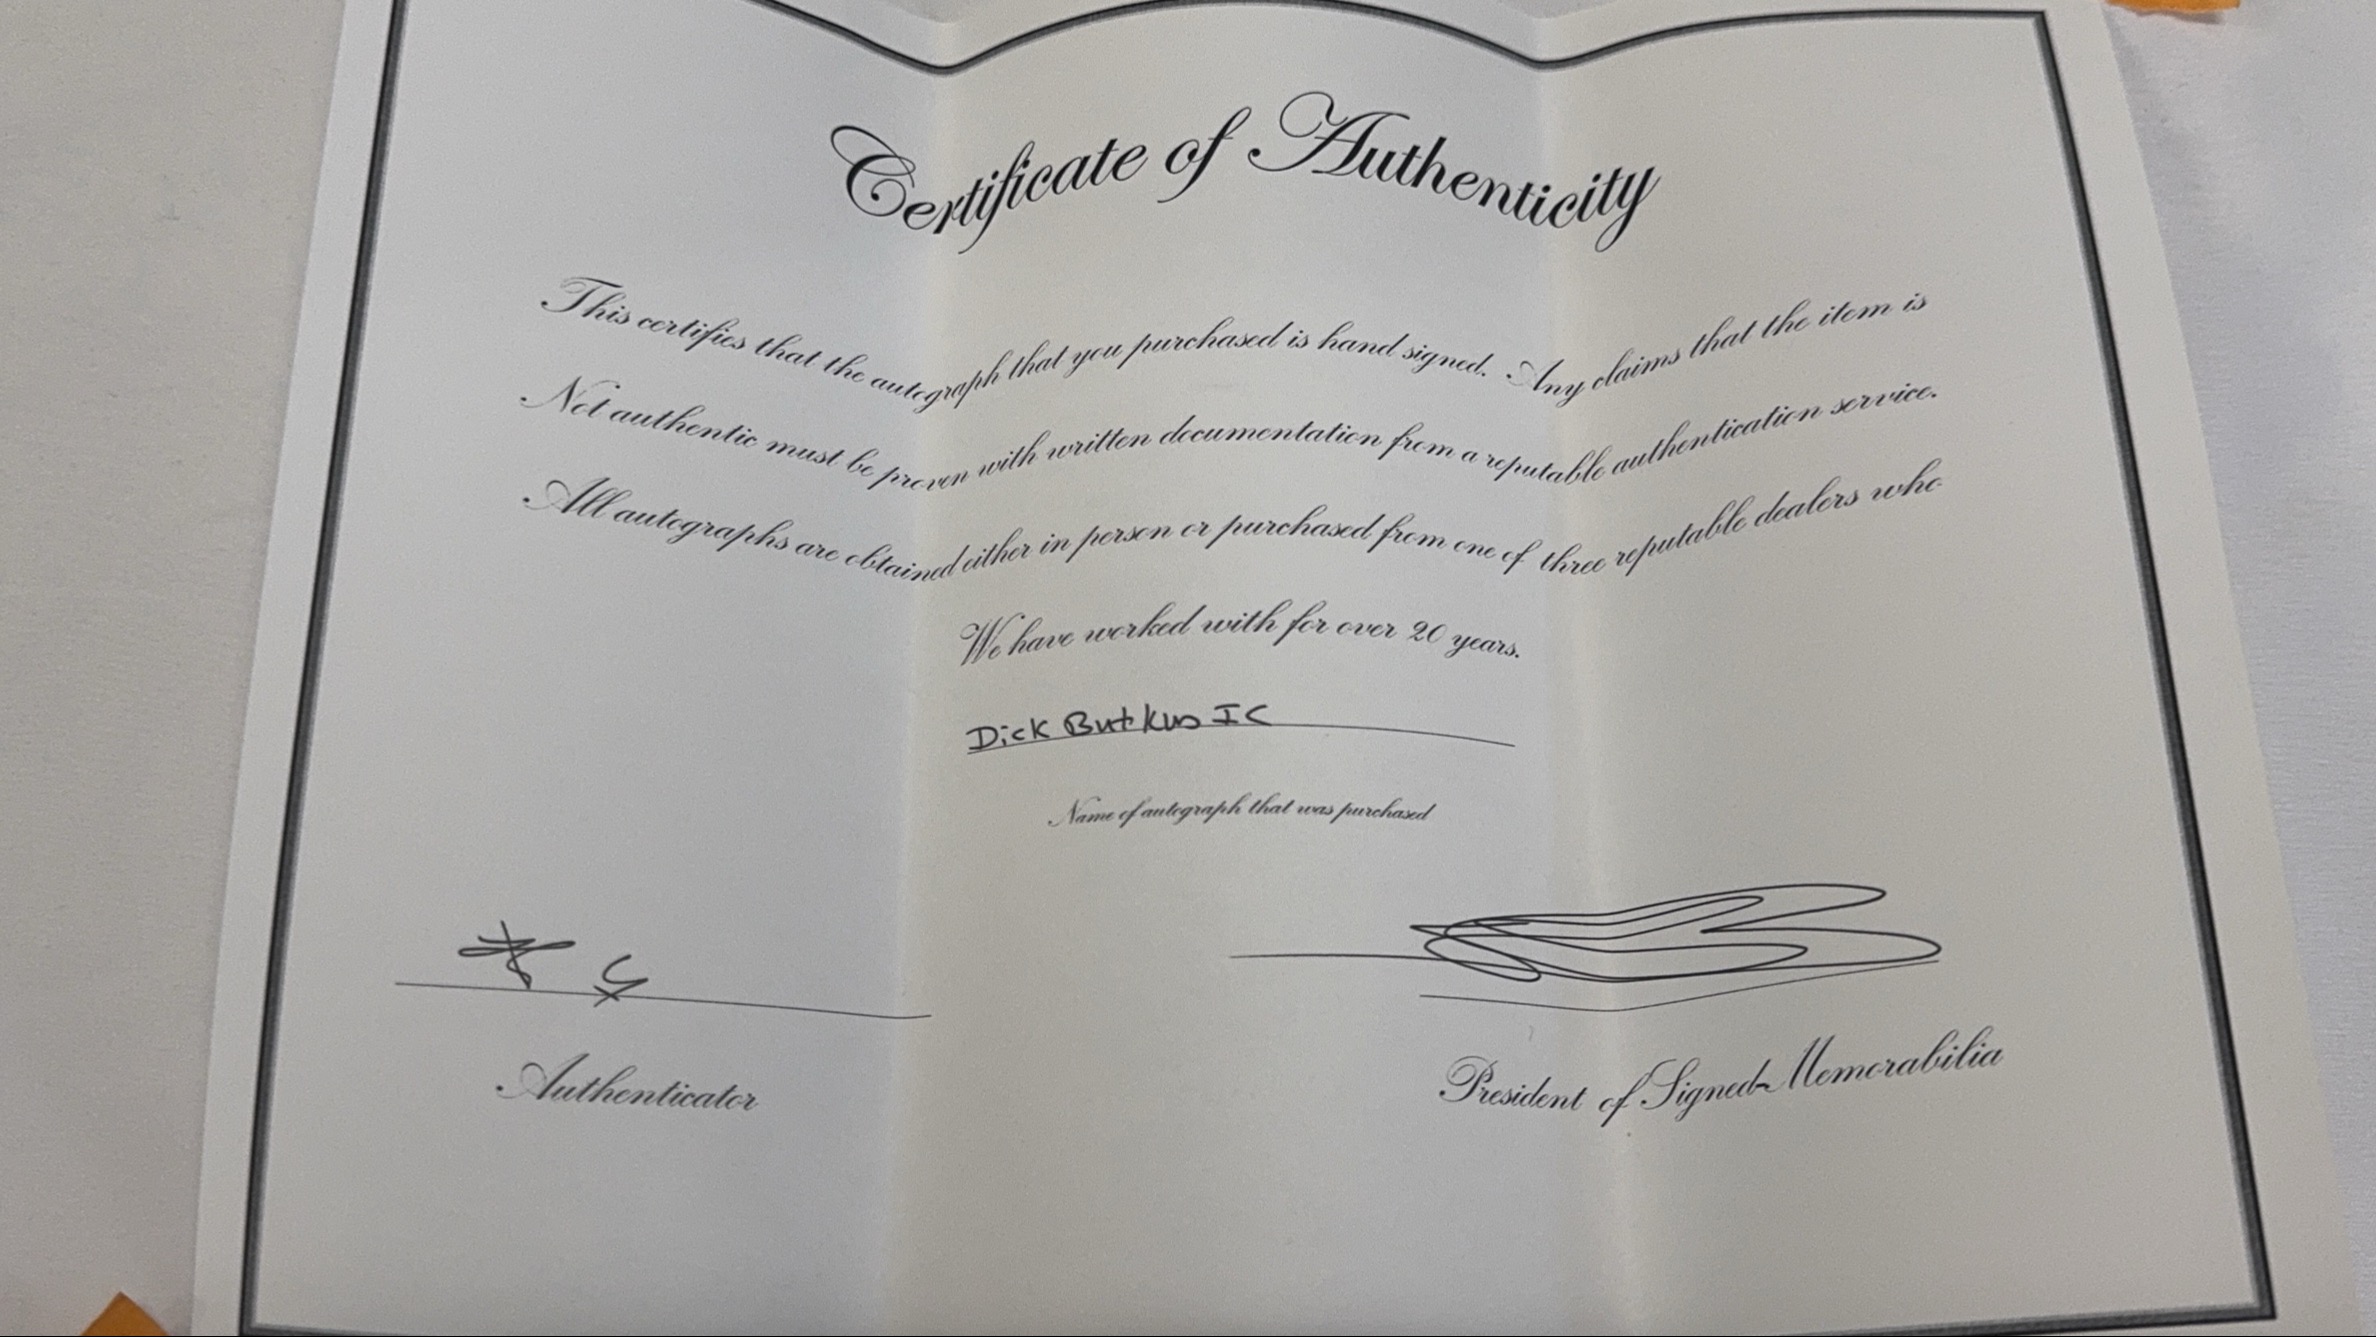 Certificate of Authenticity
This certifies that the autograph that you purchased is hand signed. Any claims that the item is
Not authentic must be proven with written documentation from a reputable authentication service.
All autographs are obtained either in person or purchased from one of three reputable dealers who
We have worked with for over 20 years.
Dick Butkus IC
Name of autograph that was purchased
Authenticator
President of Signed Memorabilia